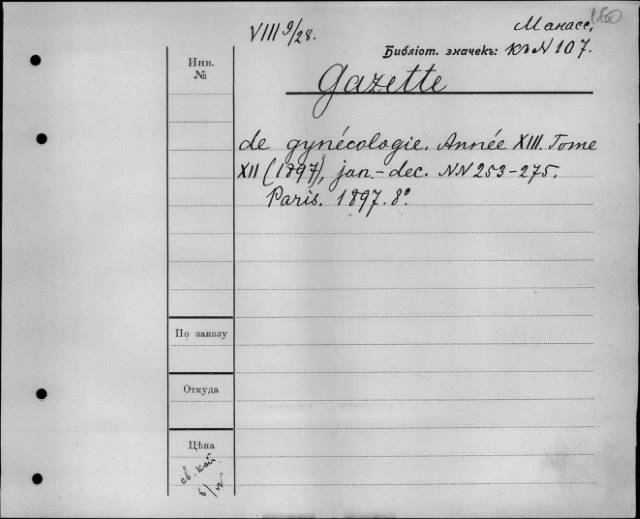 Манасс. 180
VIII 9/28.
Библіот. значекъ: къ N 107.
Инв.
№
Gazette
de gynécologie. Année XIII. Tome
XII (1897), jan.-dec. NN 253-275.
Paris. 1897. 8°
По заказу
Откуда
Цѣна